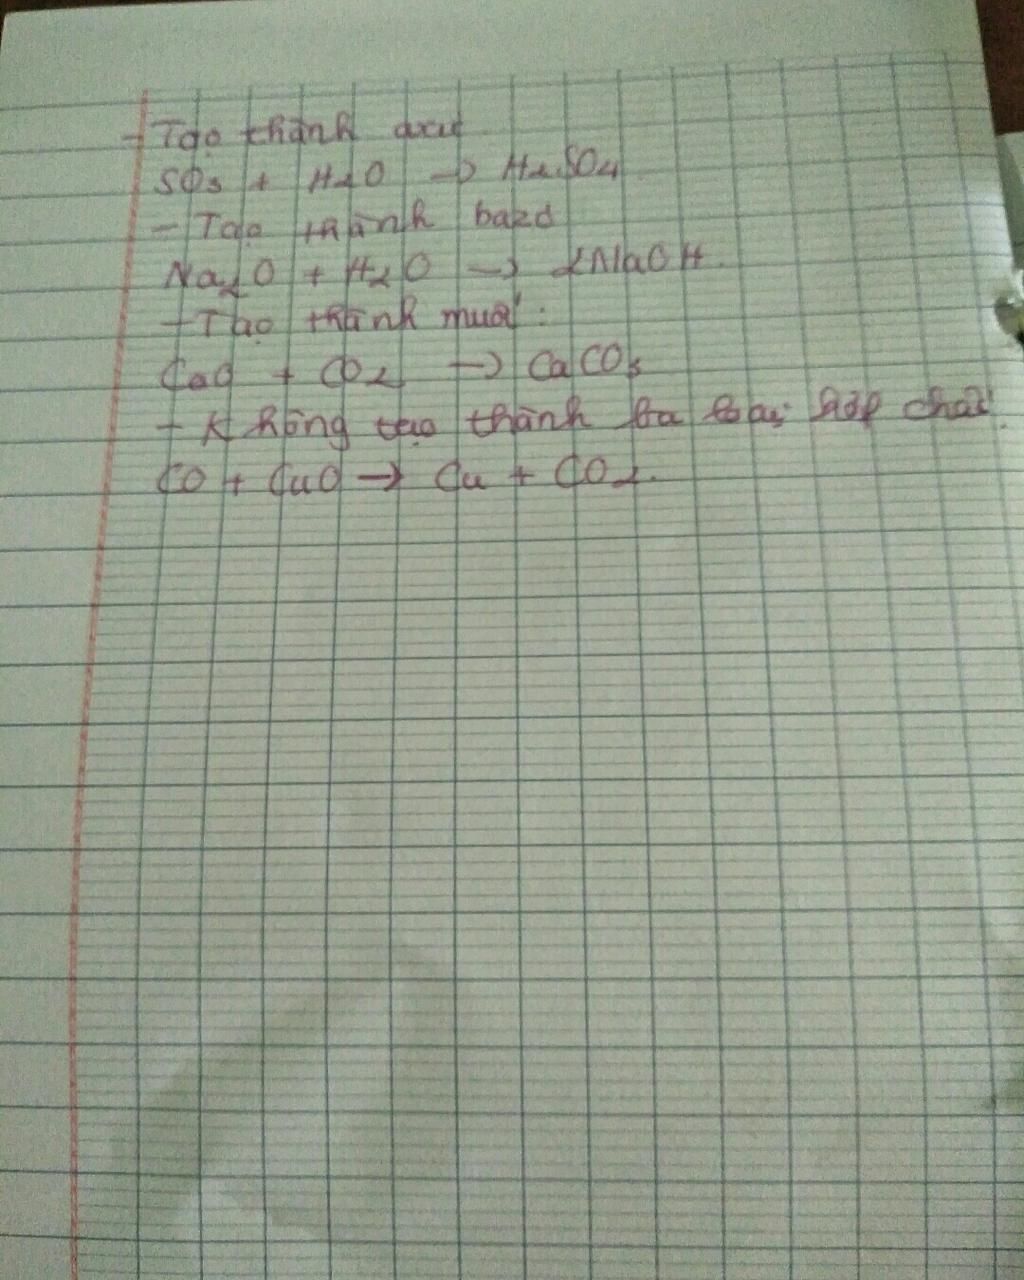 - Tạo thành axit
SO₃ + H₂O → H₂SO₄
- Tạo thành bazơ
Na₂O + H₂O → 2NaOH.
- Tạo thành muối :
CaO + CO₂ → CaCO₃
- Không tạo thành ba loại hợp chất.
CO + CuO → Cu + CO₂.